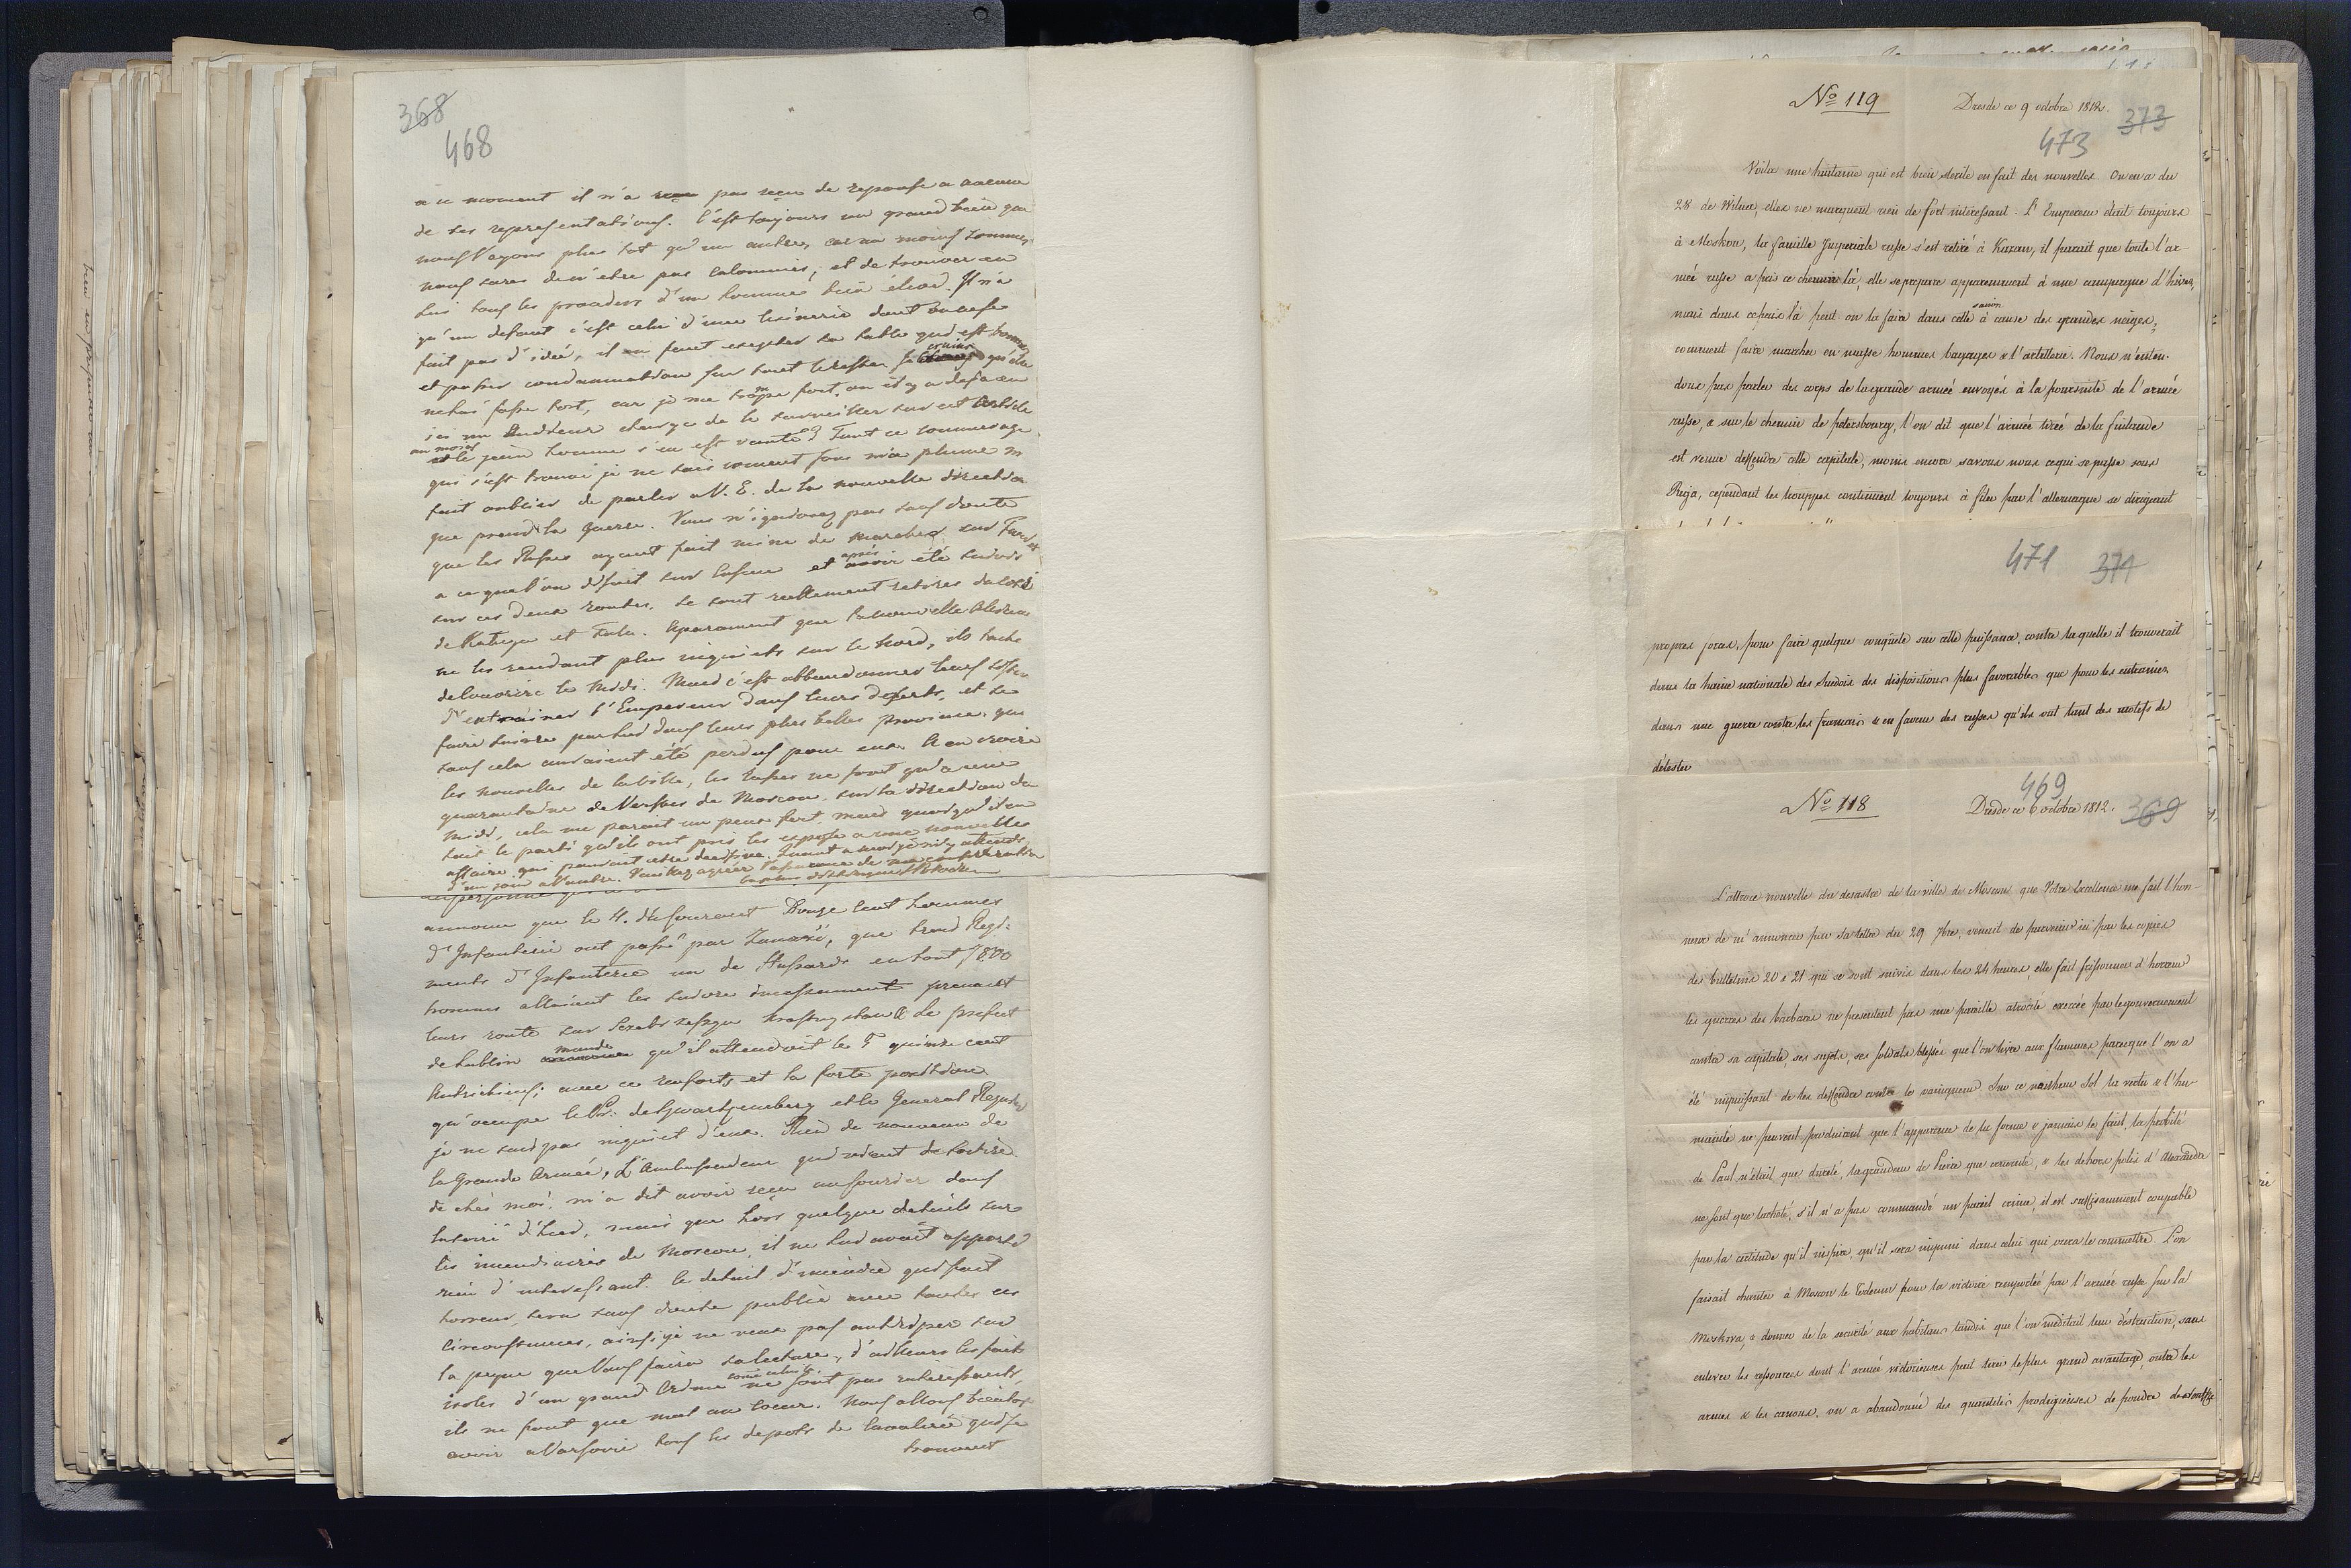 368
468
a ce moment il n'a pas reçu de reponse a aucune
de ses representations. C'est toujours un grand bien que
nous l'ayons plus tot qu'un autre, car au moins sommes
nous sures de n'etre pas calomniés, et de trouver en
lui tous les procedes d'un homme bien élevé. Il n'a
qu'un defaut c'est celui d'une lesinerie dont on ne se
fait pas d'idée, il en faut excepter sa table qui est bonne
et passer condamnation sur tout le reste. Je crains qu'elle
ne lui fasse tort, car je me trompe fort, ou il y a deja eu
ici un Auditeur chargé de le surveiller sur cet article
au moins le jeune homme s'en est vanté? Tout ce commerage
qui s'est trouvé je ne sais comment sous ma plume m'a
fait oublier de parler a V. E. de la nouvelle direction
que prend la guerre. Vous n'ignorez pas sans doute
que les Russes ayant fait mine de marcher sur
a ce que l'on disait sur et après avoir été suivis
sur ces deux routes, se sont reellement retirés du coté
de Kaluga et Tula. Aparament que
ne les rendant plus inquiets sur le Nord, ils
de couvrir le Midi. Mais c'est abbandonner leur
d'entrainer l'Empereur dans leurs deserts, et se
faire suivre partout dans leurs plus belles province, qui
sans cela auraient été perdus pour eux. A en croire
les nouvelles de la ville, les Russes ne sont qu'a une
quarantaine de Verstes de Moscou, sur la direction du
midi, cela me parait un peu fort, mais quoiqu'il en
soit le parti qu'ils ont pris les expose a une nouvelle
affaire qui pourrait etre decisive. Quant a moi je m'y attends
d'un jour a l'autre. Veuillez agréer l'assurance de ma consideration
la plus distinguée
annonce que le 4. du courant Douze cent hommes
d'Infanterie ont passé par, que trois Regi:
ments d'Infanterie un de Hussards en tout 7800
hommes allaient les suivre incessamment prenant
leur route sur. Le prefet
de Lublin mande qu'il attendait le 5 quinze cent
Autrichiens; avec ce renforts et la forte position
qu'occupe le Pr: de Schwartzenberg et le General Regnier
je ne suis pas inquiet d'eux. Rien de nouveau de
la Grande Armée, L'Ambassadeur qui vient de sortir
de chés moi, m'a dit avoir reçu un courier dans
la soirée d'hier, mais que hors quelque details sur
les incendiaires de Moscou, il ne lui avait apporté
rien d'interessant. Ce detail d'incendie qui fait
horreur, sera sans doute publié avec toutes ces
circonstances, ainsi je ne veux pas anticiper sur
la peine que Vous faira sa lecture, d'ailleurs les faits
isoles d'un grand crime ne sont pas interessants,
ils ne font que mal au coeur. Nous allons bientot
avoir a Varsovie tous les depots de Cavalerie qui se
trouvent
No 119
Dresde ce 9 octobre 1812.
373
473
Voila une huitaine qui est bien sterile en fait des nouvelles. On en a du
28 de Wilna, elles ne marquent rien de fort interessant. L'Empereur était toujours
à Moskou, la famille Imperiale russe s'est retiré à Kazan, il parait que toute l'ar-
mée russe a pris ce chemin là, elle se prepare apparemment à une campagne d'hiver,
mais dans ce pais là peut on la faire dans cette saison à cause des grandes neiges,
comment faire marcher en masse hommes bagages & l'artillerie. Nous n'enten-
dons pas parler des corps de la grande armée envoyés à la poursuite de l'armée
russe, & sur le chemin de petersbourg, l'on dit que l'armée tirée de la finlande
est venue deffendre cette capitale, moins encore savons nous ce qui se passe sous
Riga, cependant les trouppes continuent toujours à filer par l'allemagne se dirigeant
471
371
propres forces, pour faire quelque conquète sur cette puissance, contre laquelle il trouverait
dans la haine nationale des Suedois des dispositions plus favorables que pour les entrainer
dans une guerre contre les francais & en faveur des russes qu'ils ont tant des motifs de
detester
No 118
469
Dresde ce 6 octobre 1812.
369
L'attroce nouvelle du desastre de la ville de Moscou, que Votre Excellence me fait l'hon-
neur de m'annoncer par sa lettre du 29 7bre, venait de parvenir ici par les copies
des bulletins 20 & 21 qui se sont suivis dans les 24 heures, elle fait frissonner d'horreur
les guerres des barbares ne presentent pas une pareille atrocité exercée par le gouvernement
contre sa capitale, ses sujets, ses soldats blessés que l'on livre aux flammes parceque l'on a
été impuissant de les deffendre contre le vainqueur. Sur ce malheureux Sol la vertu & l'hu-
manité ne peuvent produirent que l'apparence de la forme & jamais le fruit, la probité
de Paul n'était que dureté, la grandeur de Pierre que cruauté, & les dehors polis d'Alexandre
ne sont que lacheté, s'il n'a pas commandé un pareil crime, il est suffisamment coupable
par la certitude qu'il inspire, qu'il sera impuni dans celui qui osera le commettre. L'on
faisait chanter à Moscou le Tedeum pour la victoire remportée par l'armée russe sur la
Moskwa, & donner de la securité aux habitans tandis que l'on meditait leur destruction, sans
enlever les ressources dont l'armée victorieuses peut tirer le plus grand avantage, outre les
armes & les canons, on a abandonné des quantités prodigieuses de poudre